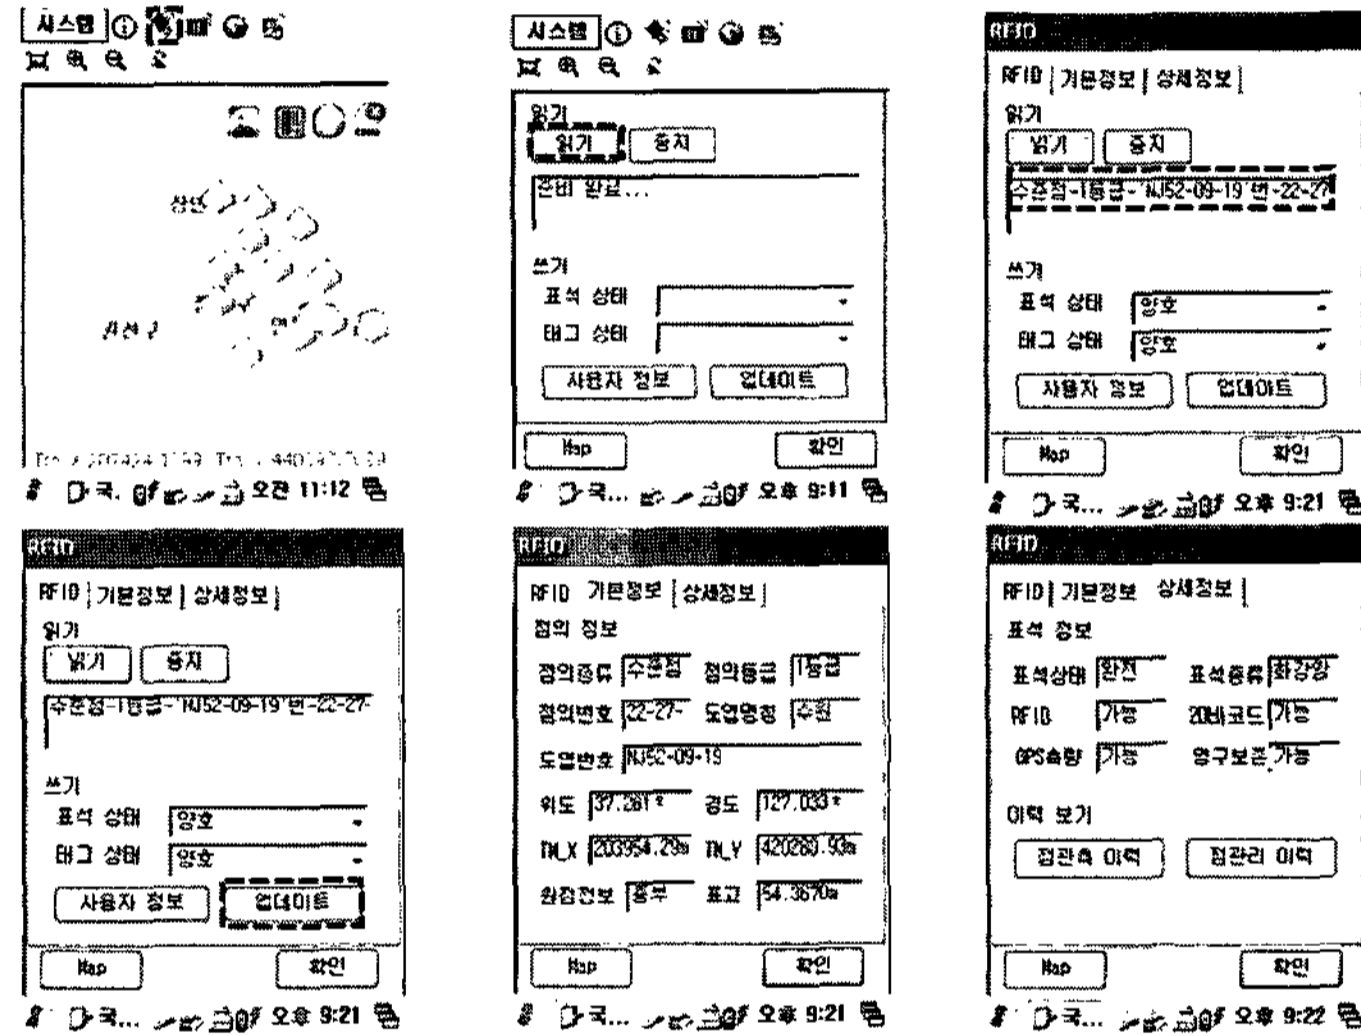 시스템
시스템
읽기
읽기 중지
준비 완료...
쓰기
표석 상태
태그 상태
사용자 정보 업데이트
Map 확인
국... 오후 9:11
RFID
RFID 기본정보 상세정보
읽기
읽기 중지
수준점-1등급- NJ52-09-19 번-22-27
쓰기
표석 상태 양호
태그 상태 양호
사용자 정보 업데이트
Map 확인
국... 오후 9:21
국. 오전 11:12
RFID
RFID 기본정보 상세정보
읽기
읽기 중지
수준점-1등급- NJ52-09-19 번-22-27-
쓰기
표석 상태 양호
태그 상태 양호
사용자 정보 업데이트
Map 확인
국... 오후 9:21
RFID
RFID 기본정보 상세정보
점의 정보
점의종류 수준점 점의등급 1등급
점의번호 22-27- 도엽명칭 수원
도엽번호 NJ52-09-19
위도 37.261 경도 127.033
TM_X 203954.29m TM_Y 420280.93m
원점정보 중부 표고 54.3670m
Map 확인
국... 오후 9:21
RFID
RFID 기본정보 상세정보
표석 정보
표석상태 완전 표석종류 화강암
RFID 가능 2D바코드 가능
GPS측량 가능 영구보존 가능
이력 보기
점관측 이력 점관리 이력
Map 확인
국... 오후 9:22